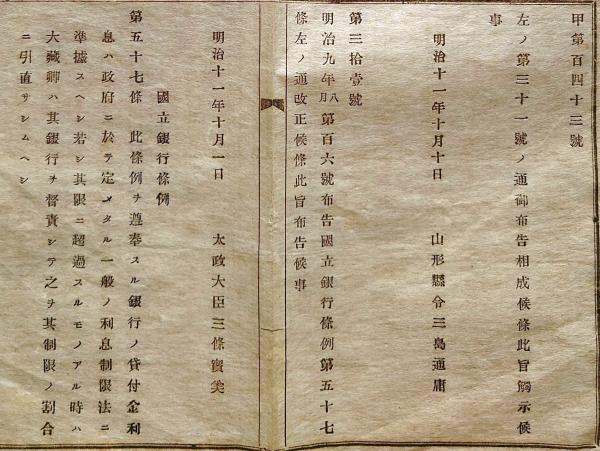 甲第百四十三號
左ノ第三十一號ノ通御布告相成候條此旨觸示候
事
明治十一年十月十日 山形縣令三島通庸
第三拾壹號
明治九年八月第百六號布告國立銀行條例第五十七
條左ノ通改正候條此旨布告候事
明治十一年十月一日 太政大臣三條實美
國立銀行條例
第五十七條 此條例ヲ遵奉スル銀行ノ貸付金利
息ハ政府ニ於テ定メタル一般ノ利息制限法ニ
準據スヘシ若シ其限ニ超過スルモノアル時ハ
大藏卿ハ其銀行ヲ督責シテ之ヲ其制限ノ割合
ニ引直サシムヘシ